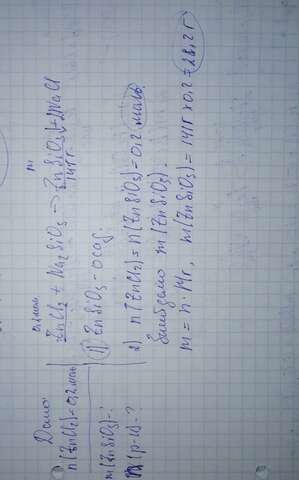 Дано:
n(ZnCl₂)=0,2 моль
m(ZnSiO₃)-?
(р-и)-?
0,2 моль
ZnCl₂ + Na₂SiO₃ → ZnSiO₃↓+2NaCl
141г
1) ZnSiO₃ - осад.
2) n(ZnCl₂) = n(ZnSiO₃) = 0,2 (моль)
m(ZnSiO₃).
m = n·Mr, m(ZnSiO₃) = 141г × 0,2 = 28,2 г